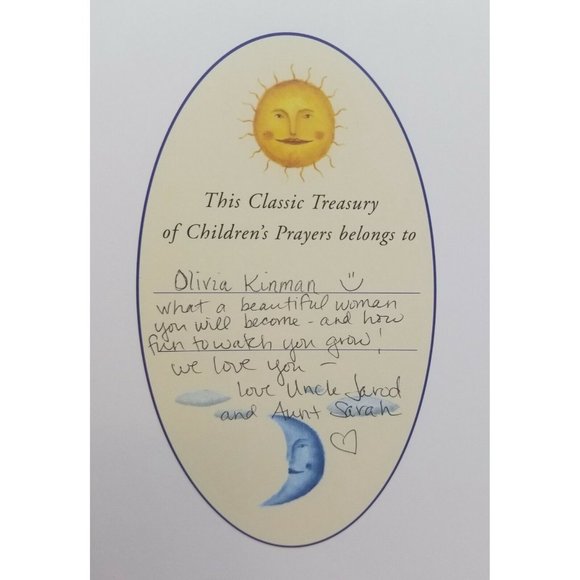 This Classic Treasury
of Children's Prayers belongs to
Olivia Kinman
what a beautiful woman
you will become - and how
fun to watch you grow!
we love you -
love Uncle Jarod
and Aunt Sarah